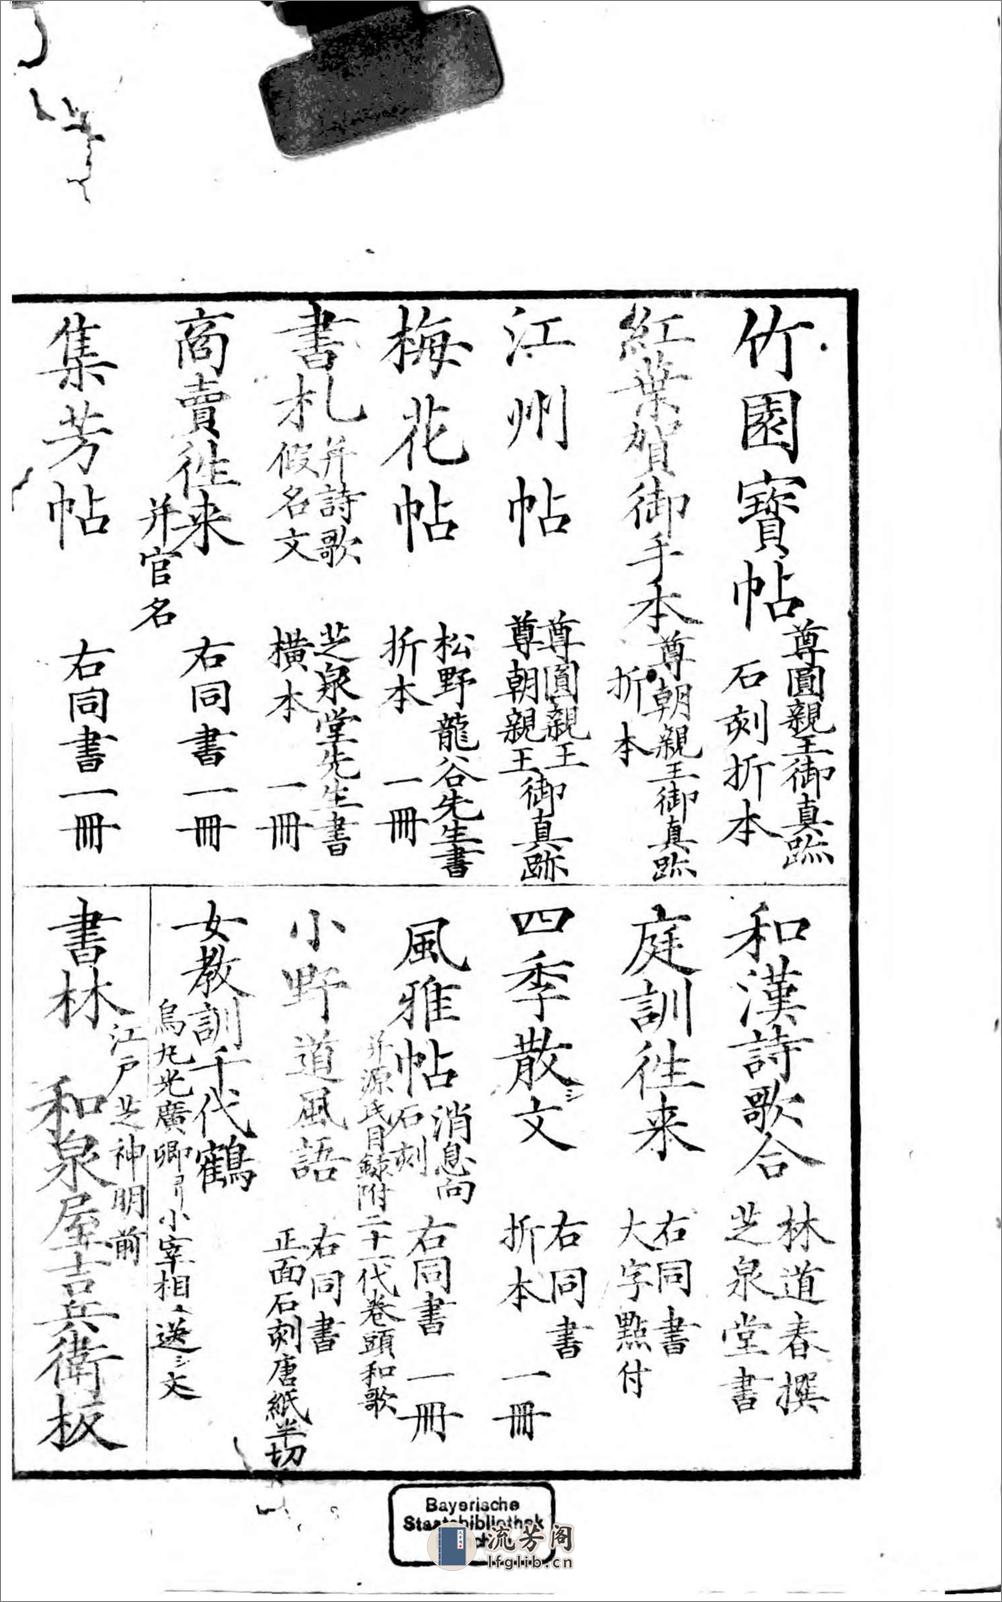 竹園寳帖
尊圓親王御真跡
石刻折本
紅葉賀御手本
尊朝親王御真跡
折本
江州帖
尊圓親王
尊朝親王御真跡
梅花帖
松野龍谷先生書
折本 一冊
書札
并詩歌
假名文
芝泉堂先生書
横本 一冊
商賣徃来
并官名
右同書一冊
集芳帖
右同書一冊
和漢詩歌合
林道春撰
芝泉堂書
庭訓徃来
右同書
大字點付
四季散シ文
右同書
折本 一冊
風雅帖
消息向
石刻
并源氏目録附二十一代巻頭和歌
右同書 一冊
小野道風語
右同書
正面石刻唐紙半切
女教訓千代鶴
烏丸光廣卿ヨリ小宰相ヘ送シ文
書林
江戸芝神明前
和泉屋吉兵衛板
Bayerische
Staatsbibliothek
流芳阁
lfglib.cn